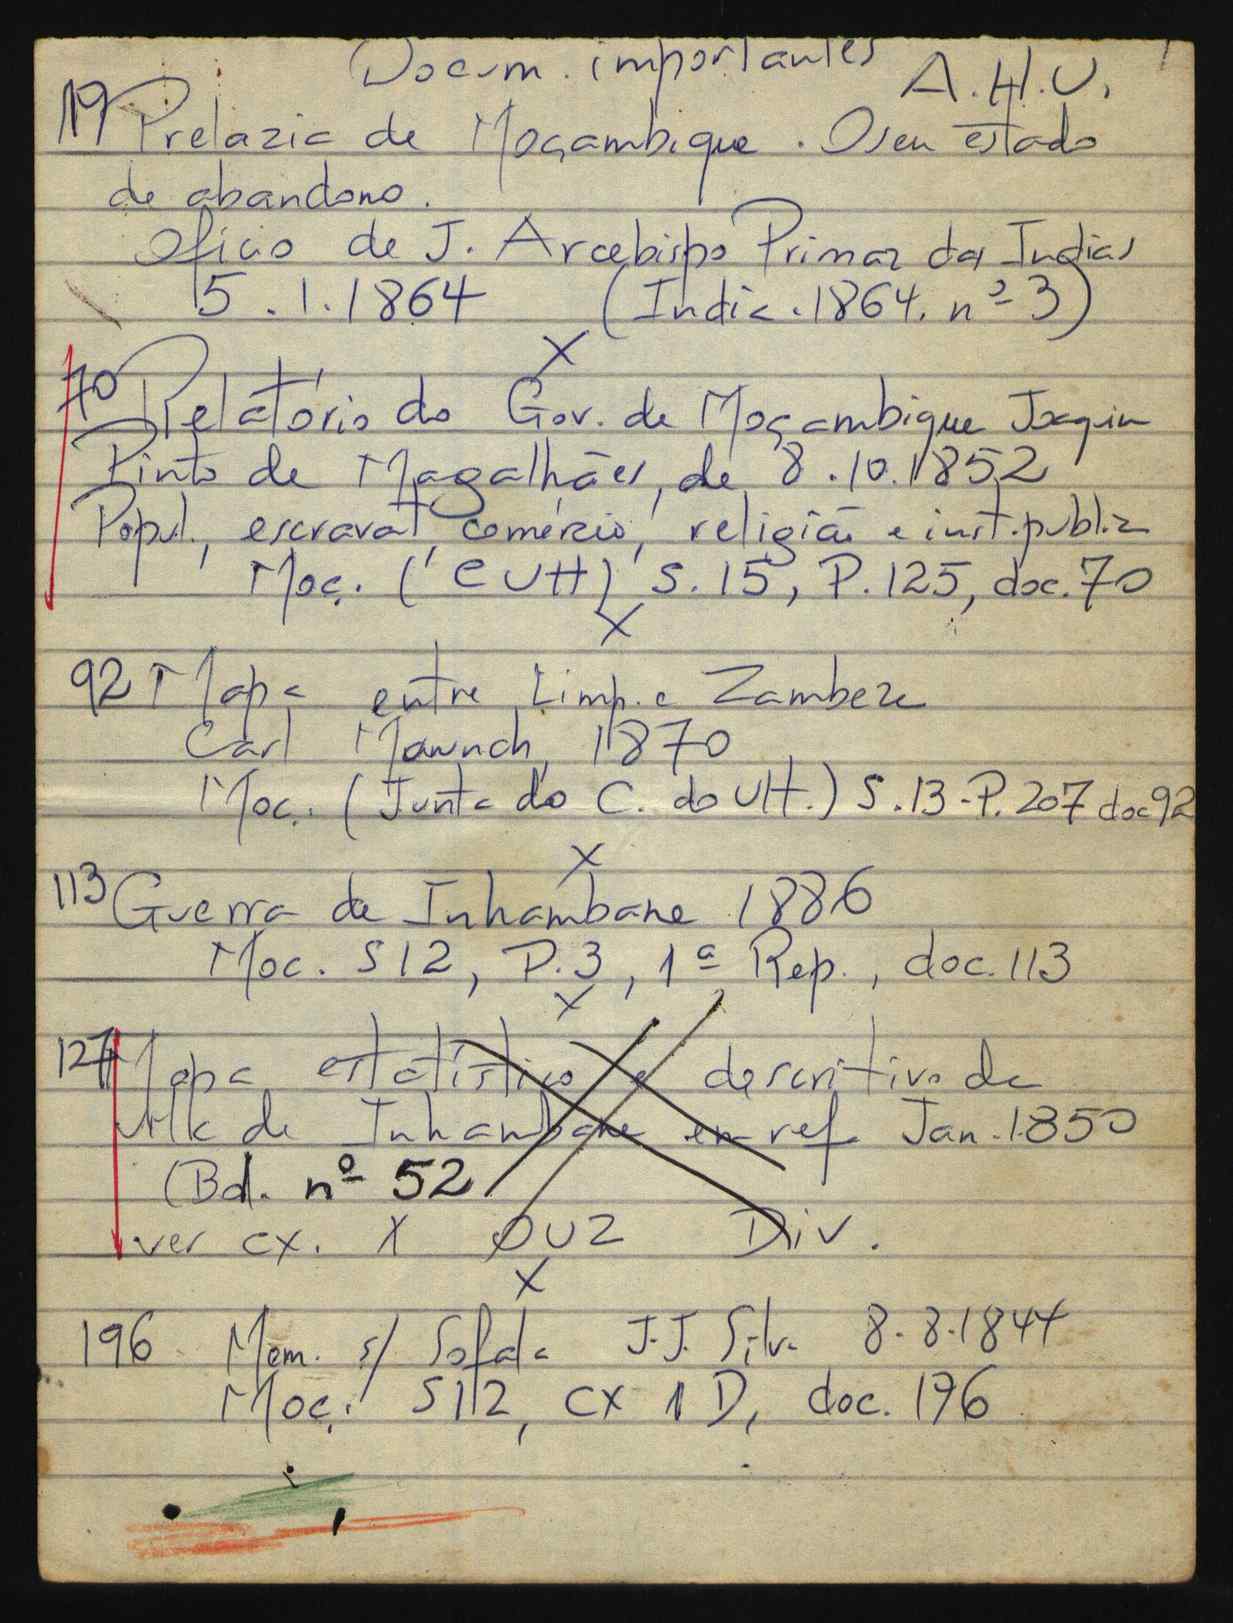 Docum. importantes A.H.U. 1
19 Prelazia de Moçambique. O seu estado
de abandono.
Ofício de J. Arcebispo Primaz das Indias
5.1.1864 (India.1864. nº 3)
X
70 Relatório do Gov. de Moçambique Joaquim
Pinto de Magalhães, de 8.10.1852
Popul., escravat, comércio, religião e inst. publiz
Moç. (CUH) S.15, P.125, doc.70
X
92 Mapa entre Limp. e Zambeze
Carl Mawnch, 1870
Moç. (Junta do C. do Ult.) S.13-P.207 doc92
X
113 Guerra de Inhambane 1886
Moc. S12, P.3, 1ª Rep., doc.113
X
127 Mapa estatístico e descritivo da
villa de Inhambane em ref. Jan.1850
(Bd. nº 52
ver cx. X OUZ Div.
X
196 Mem. s/ Sofala J.J. Silva 8.8.1844
Moç. S12, cx 1 D, doc. 196